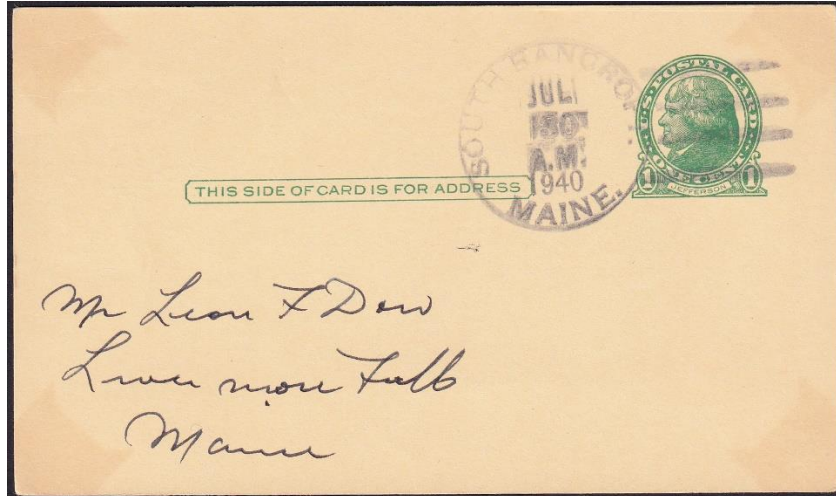 SOUTH BANGOR
JUL
30
A.M.
1940
MAINE.
U.S. POSTAL CARD
ONE CENT
1 JEFFERSON 1
THIS SIDE OF CARD IS FOR ADDRESS
Mr Leon F Dow
Livermore Falls
Maine